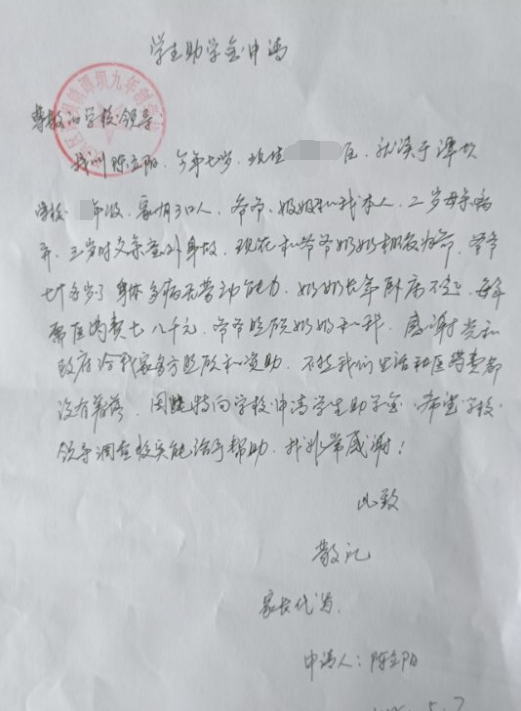 学生助学金申请
潭坝九年制学校
尊敬的学校领导
我叫陈立阳，今年七岁，现住 区，就读于潭坝
学校 年级，家有3口人，爷爷、奶奶和我本人，二岁母亲病
弃，三岁时父亲意外身故，现在和爷爷奶奶相依为命，爷爷
七十多岁了身体多病无劳动能力，奶奶长年卧病不起，每年
需医药费七八千元，爷爷照顾奶奶和我，感谢党和
政府给我家多方照顾和资助，不然我们生活和医药费都
没有着落，因此特向学校申请学生助学金，希望学校
领导调查核实能给予帮助，我非常感谢！
此致
敬礼
家长代写
申请人：陈立阳
5.7